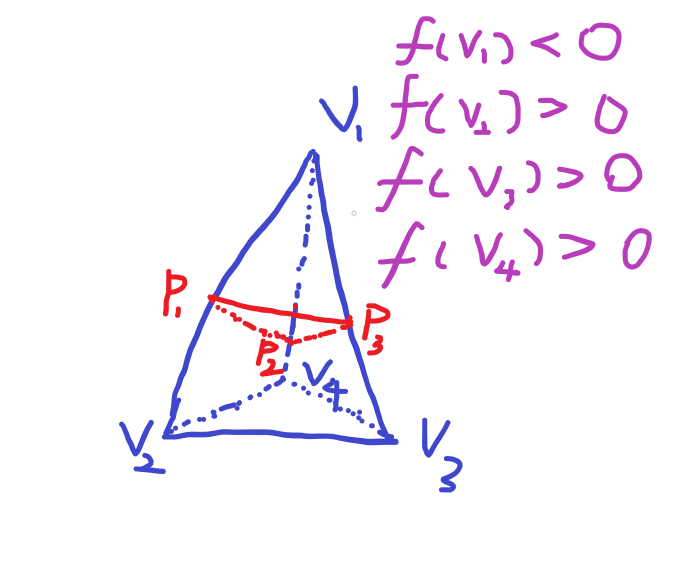 f(V₁) < 0
V₁
f(V₂) > 0
f(V₃) > 0
f(V₄) > 0
P₁
P₃
P₂
V₄
V₂
V₃